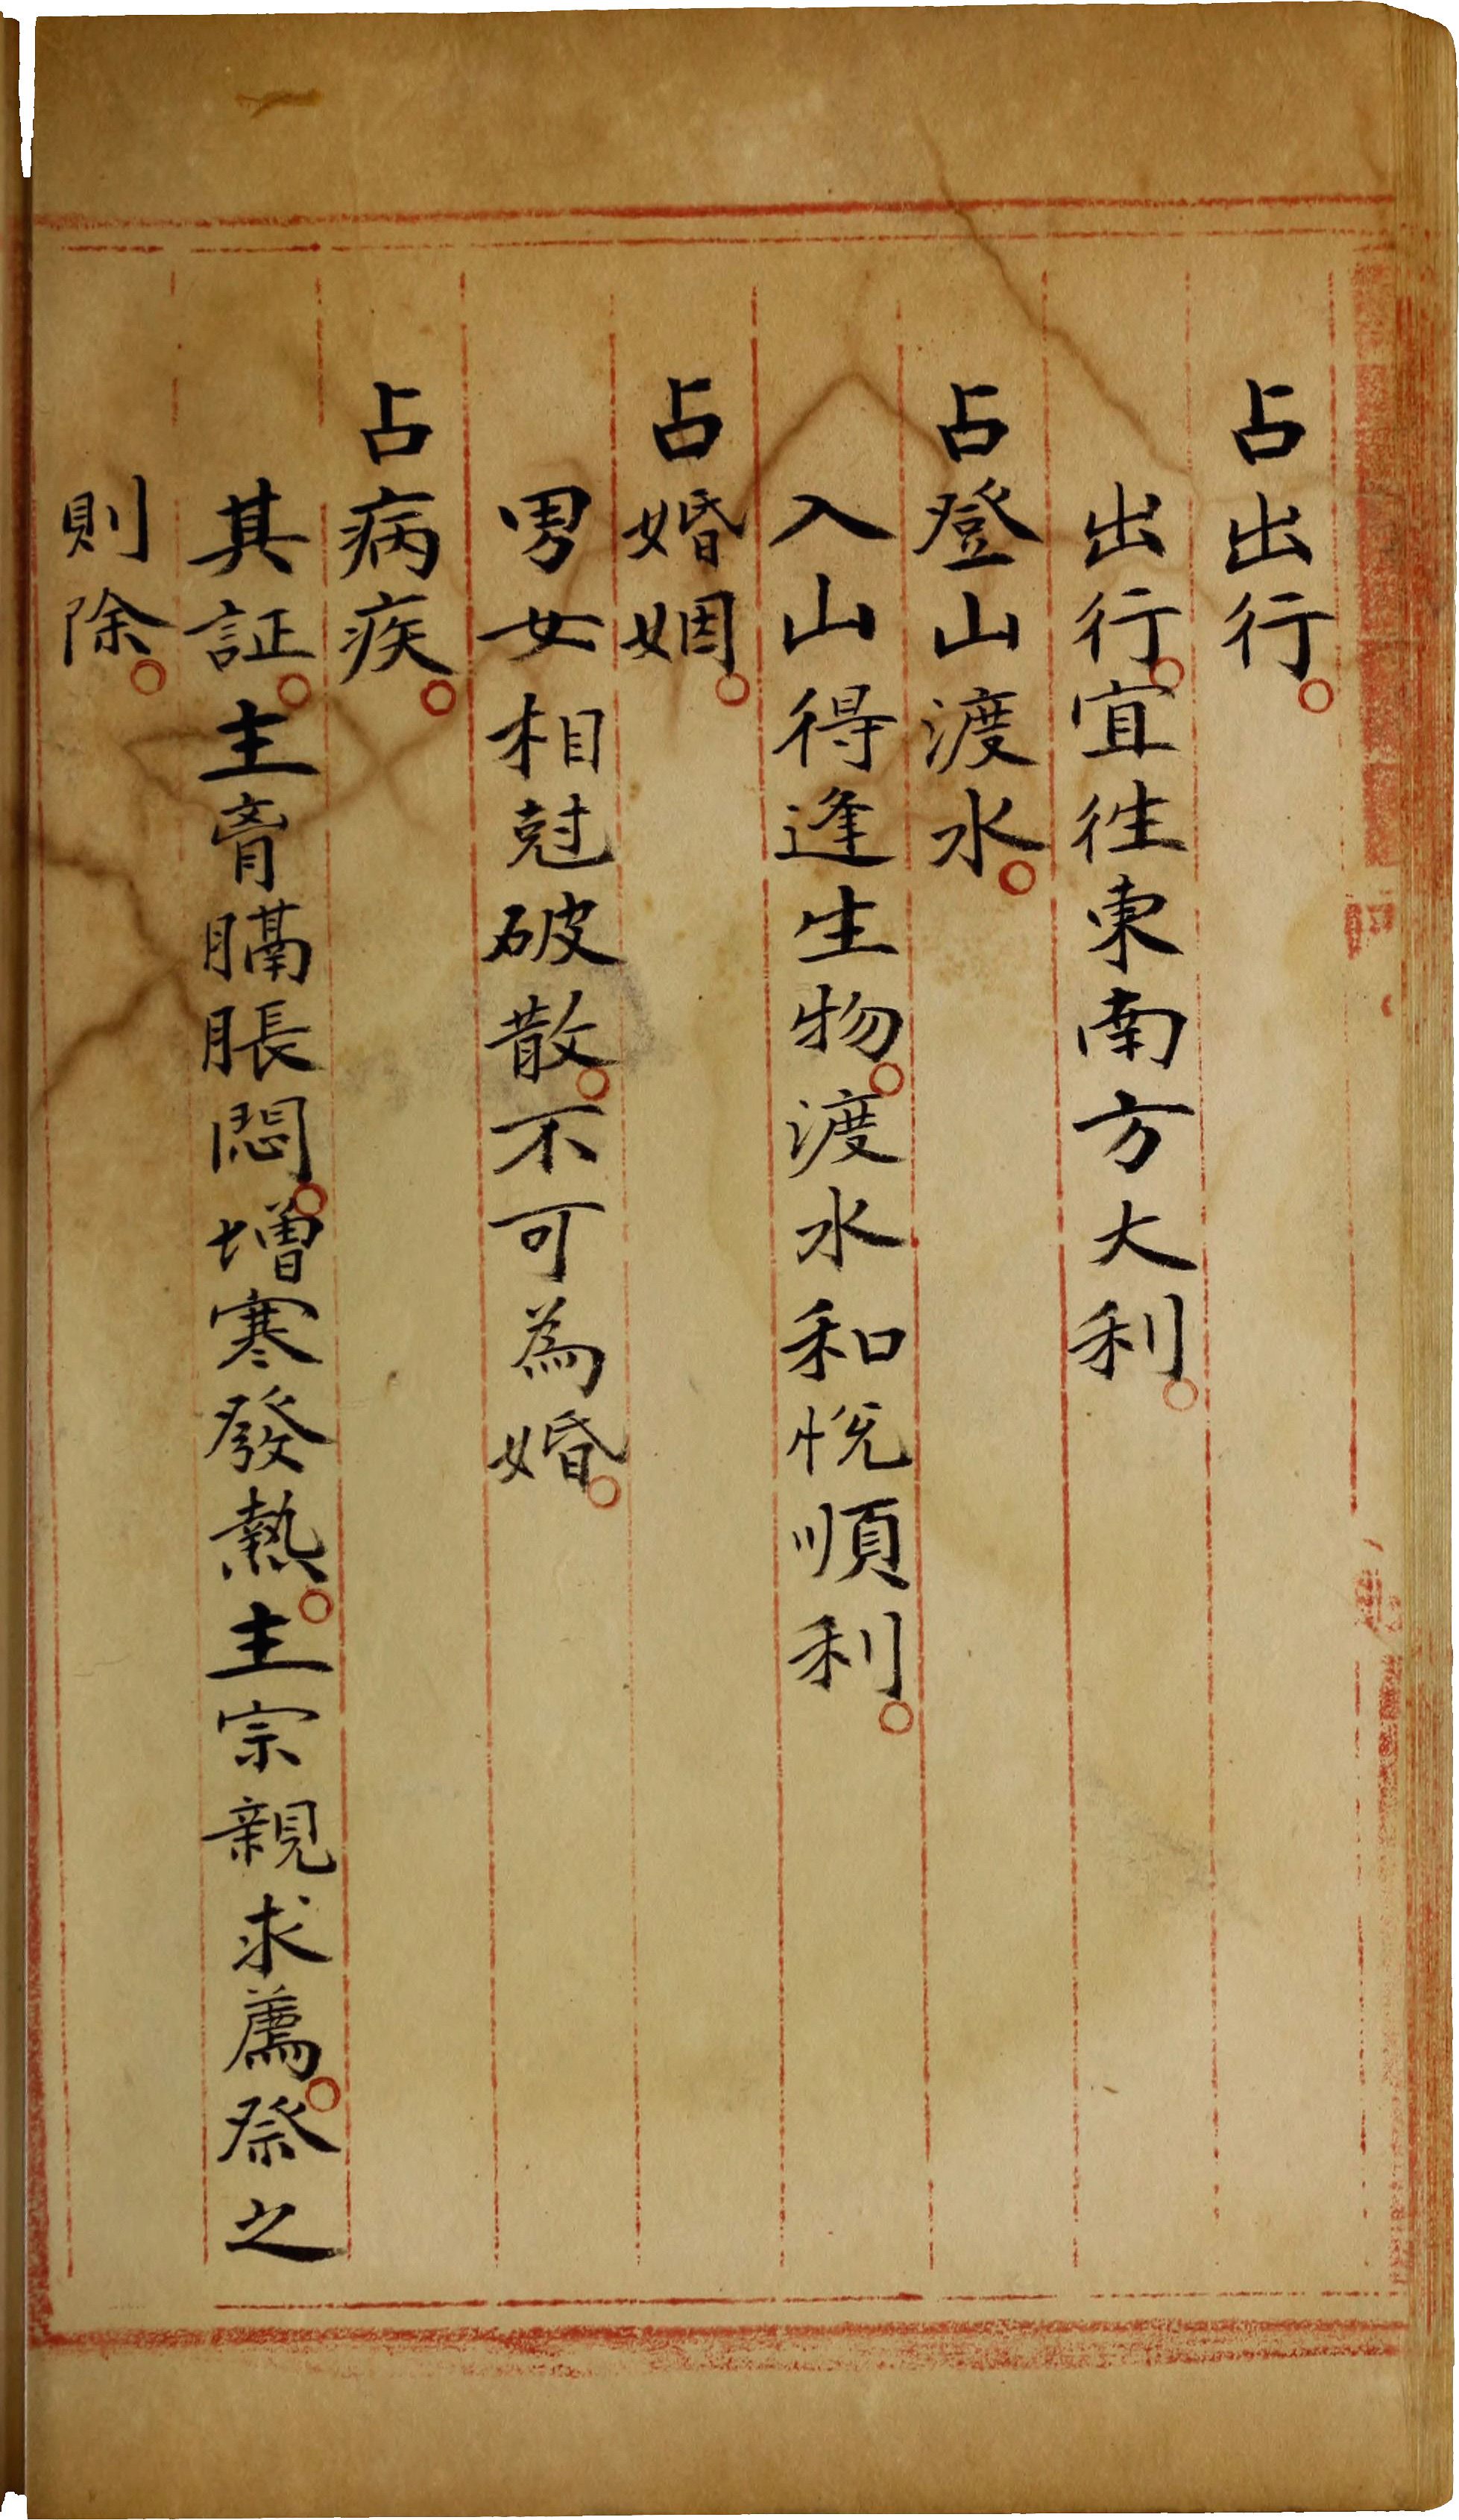 占出行。
出行。宜徃東南方大利。
占登山渡水。
入山得逢生物。渡水和悅順利。
占婚姻。
男女相尅破散。不可為婚。
占病疾。
其証。主膏膈脹悶。增寒發熱。主宗親求薦。祭之
則除。